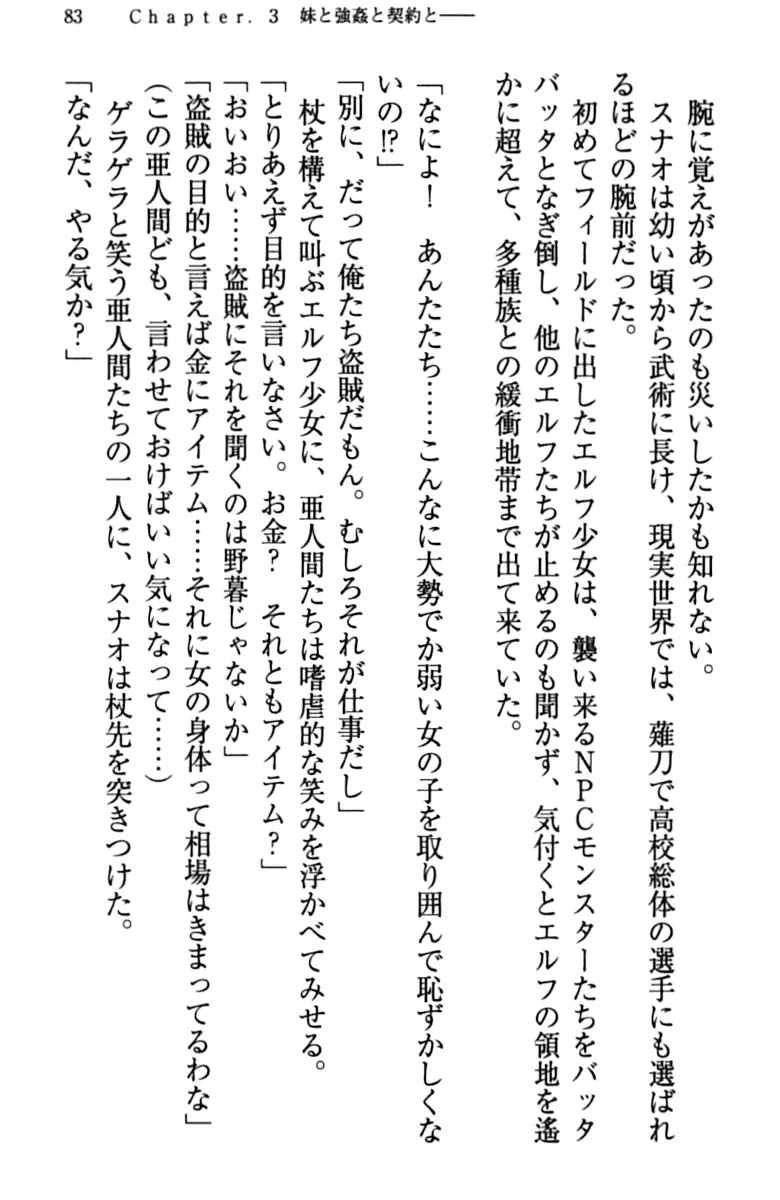 83　Chapter. 3　妹と強姦と契約と――
　腕に覚えがあったのも災いしたかも知れない。
　スナオは幼い頃から武術に長け、現実世界では、薙刀で高校総体の選手にも選ばれ
るほどの腕前だった。
　初めてフィールドに出したエルフ少女は、襲い来るNPCモンスターたちをバッタ
バッタとなぎ倒し、他のエルフたちが止めるのも聞かず、気付くとエルフの領地を遙
かに超えて、多種族との緩衝地帯まで出て来ていた。
「なによ！　あんたたち……こんなに大勢でか弱い女の子を取り囲んで恥ずかしくな
いの!?」
「別に、だって俺たち盗賊だもん。むしろそれが仕事だし」
　杖を構えて叫ぶエルフ少女に、亜人間たちは嗜虐的な笑みを浮かべてみせる。
「とりあえず目的を言いなさい。お金？　それともアイテム？」
「おいおい……盗賊にそれを聞くのは野暮じゃないか」
「盗賊の目的と言えば金にアイテム……それに女の身体って相場はきまってるわな」
（この亜人間ども、言わせておけばいい気になって……）
　ゲラゲラと笑う亜人間たちの一人に、スナオは杖先を突きつけた。
「なんだ、やる気か？」